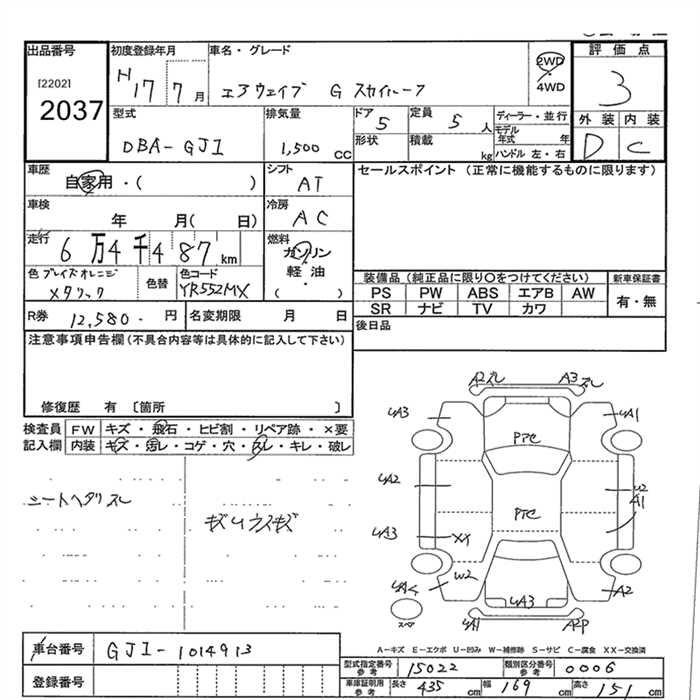 出品番号 初度登録年月 車名・グレード 評価点
[2202] H17 7月 エアウェイブ G スカイルーフ 2WD・4WD 3
2037
型式 排気量 ドア 定員 ディーラー・並行 外装 内装
DBA-GJ1 1,500 cc 5 5人 モデル年式 年 D C
形状 積載 kg ハンドル 左・右
車歴 自家用・( ) シフト AT セールスポイント (正常に機能するものに限ります)
車検 年 月( 日) 冷房 AC
走行 6万4千487km 燃料 ガソリン
軽油・
( )
色 ブレイズオレンジ 色替 色コード
メタリック YR552MX
装備品(純正品に限り○をつけてください) 新車保証書
PS PW ABS エアB AW 有・無
SR ナビ TV カワ
R券 12,580.- 円 名変期限 月 日 後日品
注意事項申告欄(不具合内容等は具体的に記入して下さい)
修復歴 有 〔箇所 〕
検査員 FW キズ・飛石・ヒビ割・リペア跡・×要
記入欄 内装 キズ・汚レ・コゲ・穴・スレ・キレ・破レ
シートヘタリスレ
キズUウスキズ
A2ズレ A3ズレ
UA3 UA1
PTC
UA2 U2
A1
PTC
UA3 XX
W2
UA4 A2
UA3
スペア UA1 A2P
A-キズ E-エクボ U-凹み W-補修跡 S-サビ C-腐食 XX-交換済
車台番号 GJ1-1014913
登録番号
型式指定番号 参考 15022 類別区分番号 参考 0006
車庫証明用 参考 長さ 435 cm 幅 169 cm 高さ 151 cm